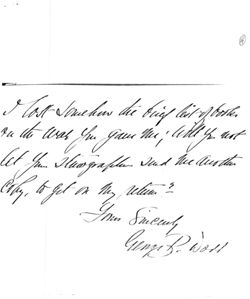 I lost somehow the brief list of books
on the way you gave me; Will you not
let your stenographer send me another
Copy, to get on my return?
Yours Sincerely
George R.